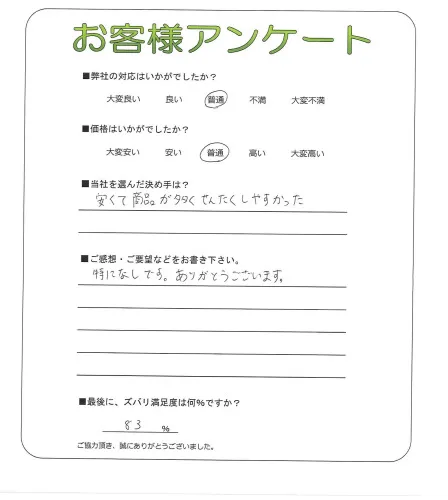 お客様アンケート
■弊社の対応はいかがでしたか?
大変良い 良い 普通 不満 大変不満
■価格はいかがでしたか?
大変安い 安い 普通 高い 大変高い
■当社を選んだ決め手は?
安くて商品が多くせんたくしやすかった
■ご感想・ご要望などをお書き下さい。
特になしです。ありがとうございます。
■最後に、ズバリ満足度は何%ですか?
83 %
ご協力頂き、誠にありがとうございました。